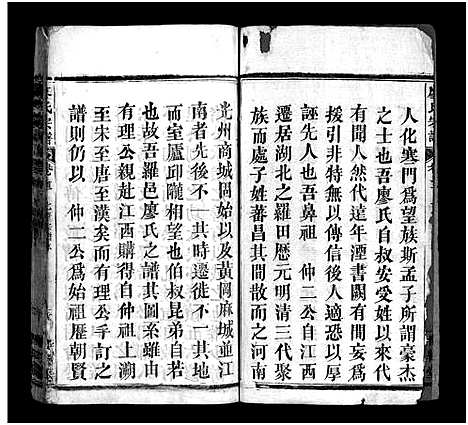 人化寒門為望族斯孟子所謂豪杰
之士也吾廖氏自叔安受姓以來代
有聞人然代遠年湮書闕有間妄為
援引非特無以傳信後人適恐以厚
誣先人也吾鼻祖　仲二公自江西
遷居湖北之羅田歷元明清三代聚
族而處子姓蕃昌其間散而之河南
光州商城固始以及黃岡麻城並江
南者先後不一其時遷徙不一其地
而室廬邱隴相望也伯叔昆弟自若
也故吾羅邑廖氏之譜其圖系雖由
有理公親赴江西購得自仲祖上溯
至宋至唐至漢矣而有理公手訂之
譜則仍以　仲二公為始祖歷朝賢
氏宗譜